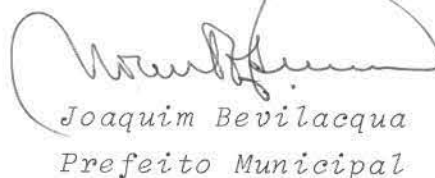 Joaquim Bevilacqua
Prefeito Municipal